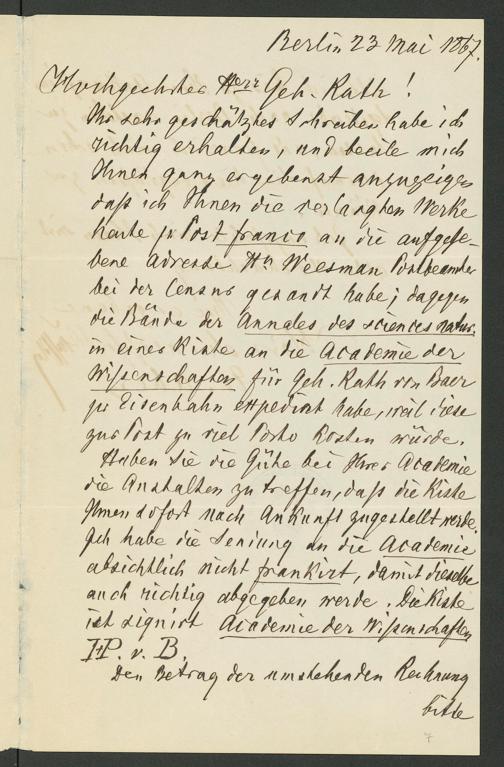 Berlin 23 Mai 1867.
Hochgeehrter Herr Geh. Rath!
Ihr sehr geschätztes Schreiben habe ich
richtig erhalten, und beeile mich
Ihnen ganz ergebenst anzuzeigen
daß ich Ihnen die verlangten Werke
heute pr Post franco an die aufgege-
bene Adresse Hn Weesman Postbeamter
bei der Censur gesandt habe; dagegen
die Bände der Annales des sciences natur.
in einer Kiste an die Academie der
Wißenschaften für Geh. Rath von Baer
pr Eisenbahn expedirt habe, weil diese
zur Post zu viel Porto kosten würde.
Haben Sie die Güte bei Ihrer Academie
die Anstalten zu treffen, daß die Kiste
Ihnen sofort nach Ankunft zugestellt werde.
Ich habe die Sendung an die Academie
absichtlich nicht frankirt, damit dieselbe
auch richtig abgegeben werde. Die Kiste
ist signirt Academie der Wißenschaften
v. B.
Den Betrag der umstehenden Rechnung
bitte
7